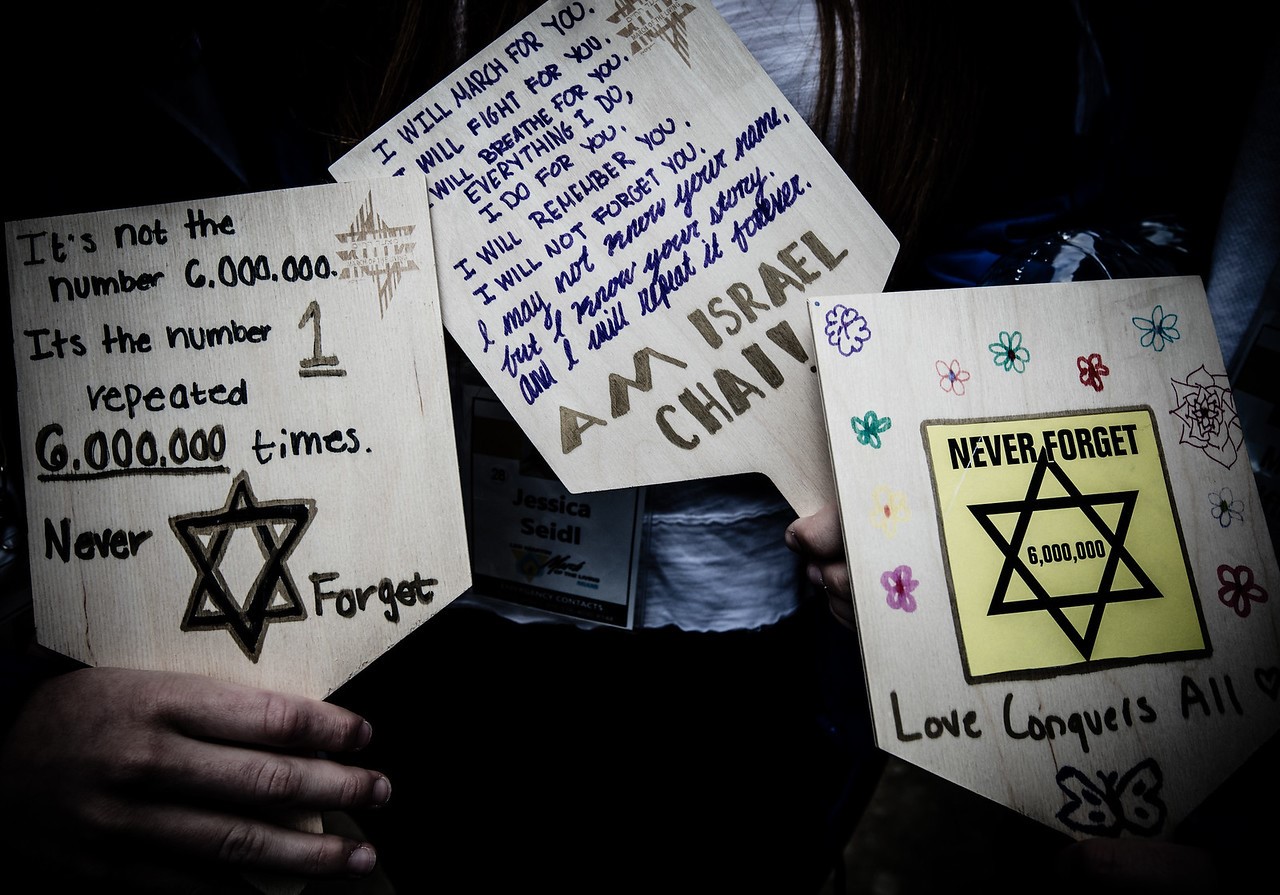 It's not the
number 6.000.000.
Its the number 1
repeated
6.000.000 times.
Never Forget
I WILL MARCH FOR YOU.
I WILL FIGHT FOR YOU.
I WILL BREATHE FOR YOU.
EVERYTHING I DO,
I DO FOR YOU.
I WILL REMEMBER YOU.
I WILL NOT FORGET YOU.
I may not know your name,
but I know your story.
and I will repeat it forever.
AM ISRAEL
CHAI!
28
Jessica
Seidl
March
OF THE LIVING
CONTACTS
NEVER FORGET
6,000,000
Love Conquers All